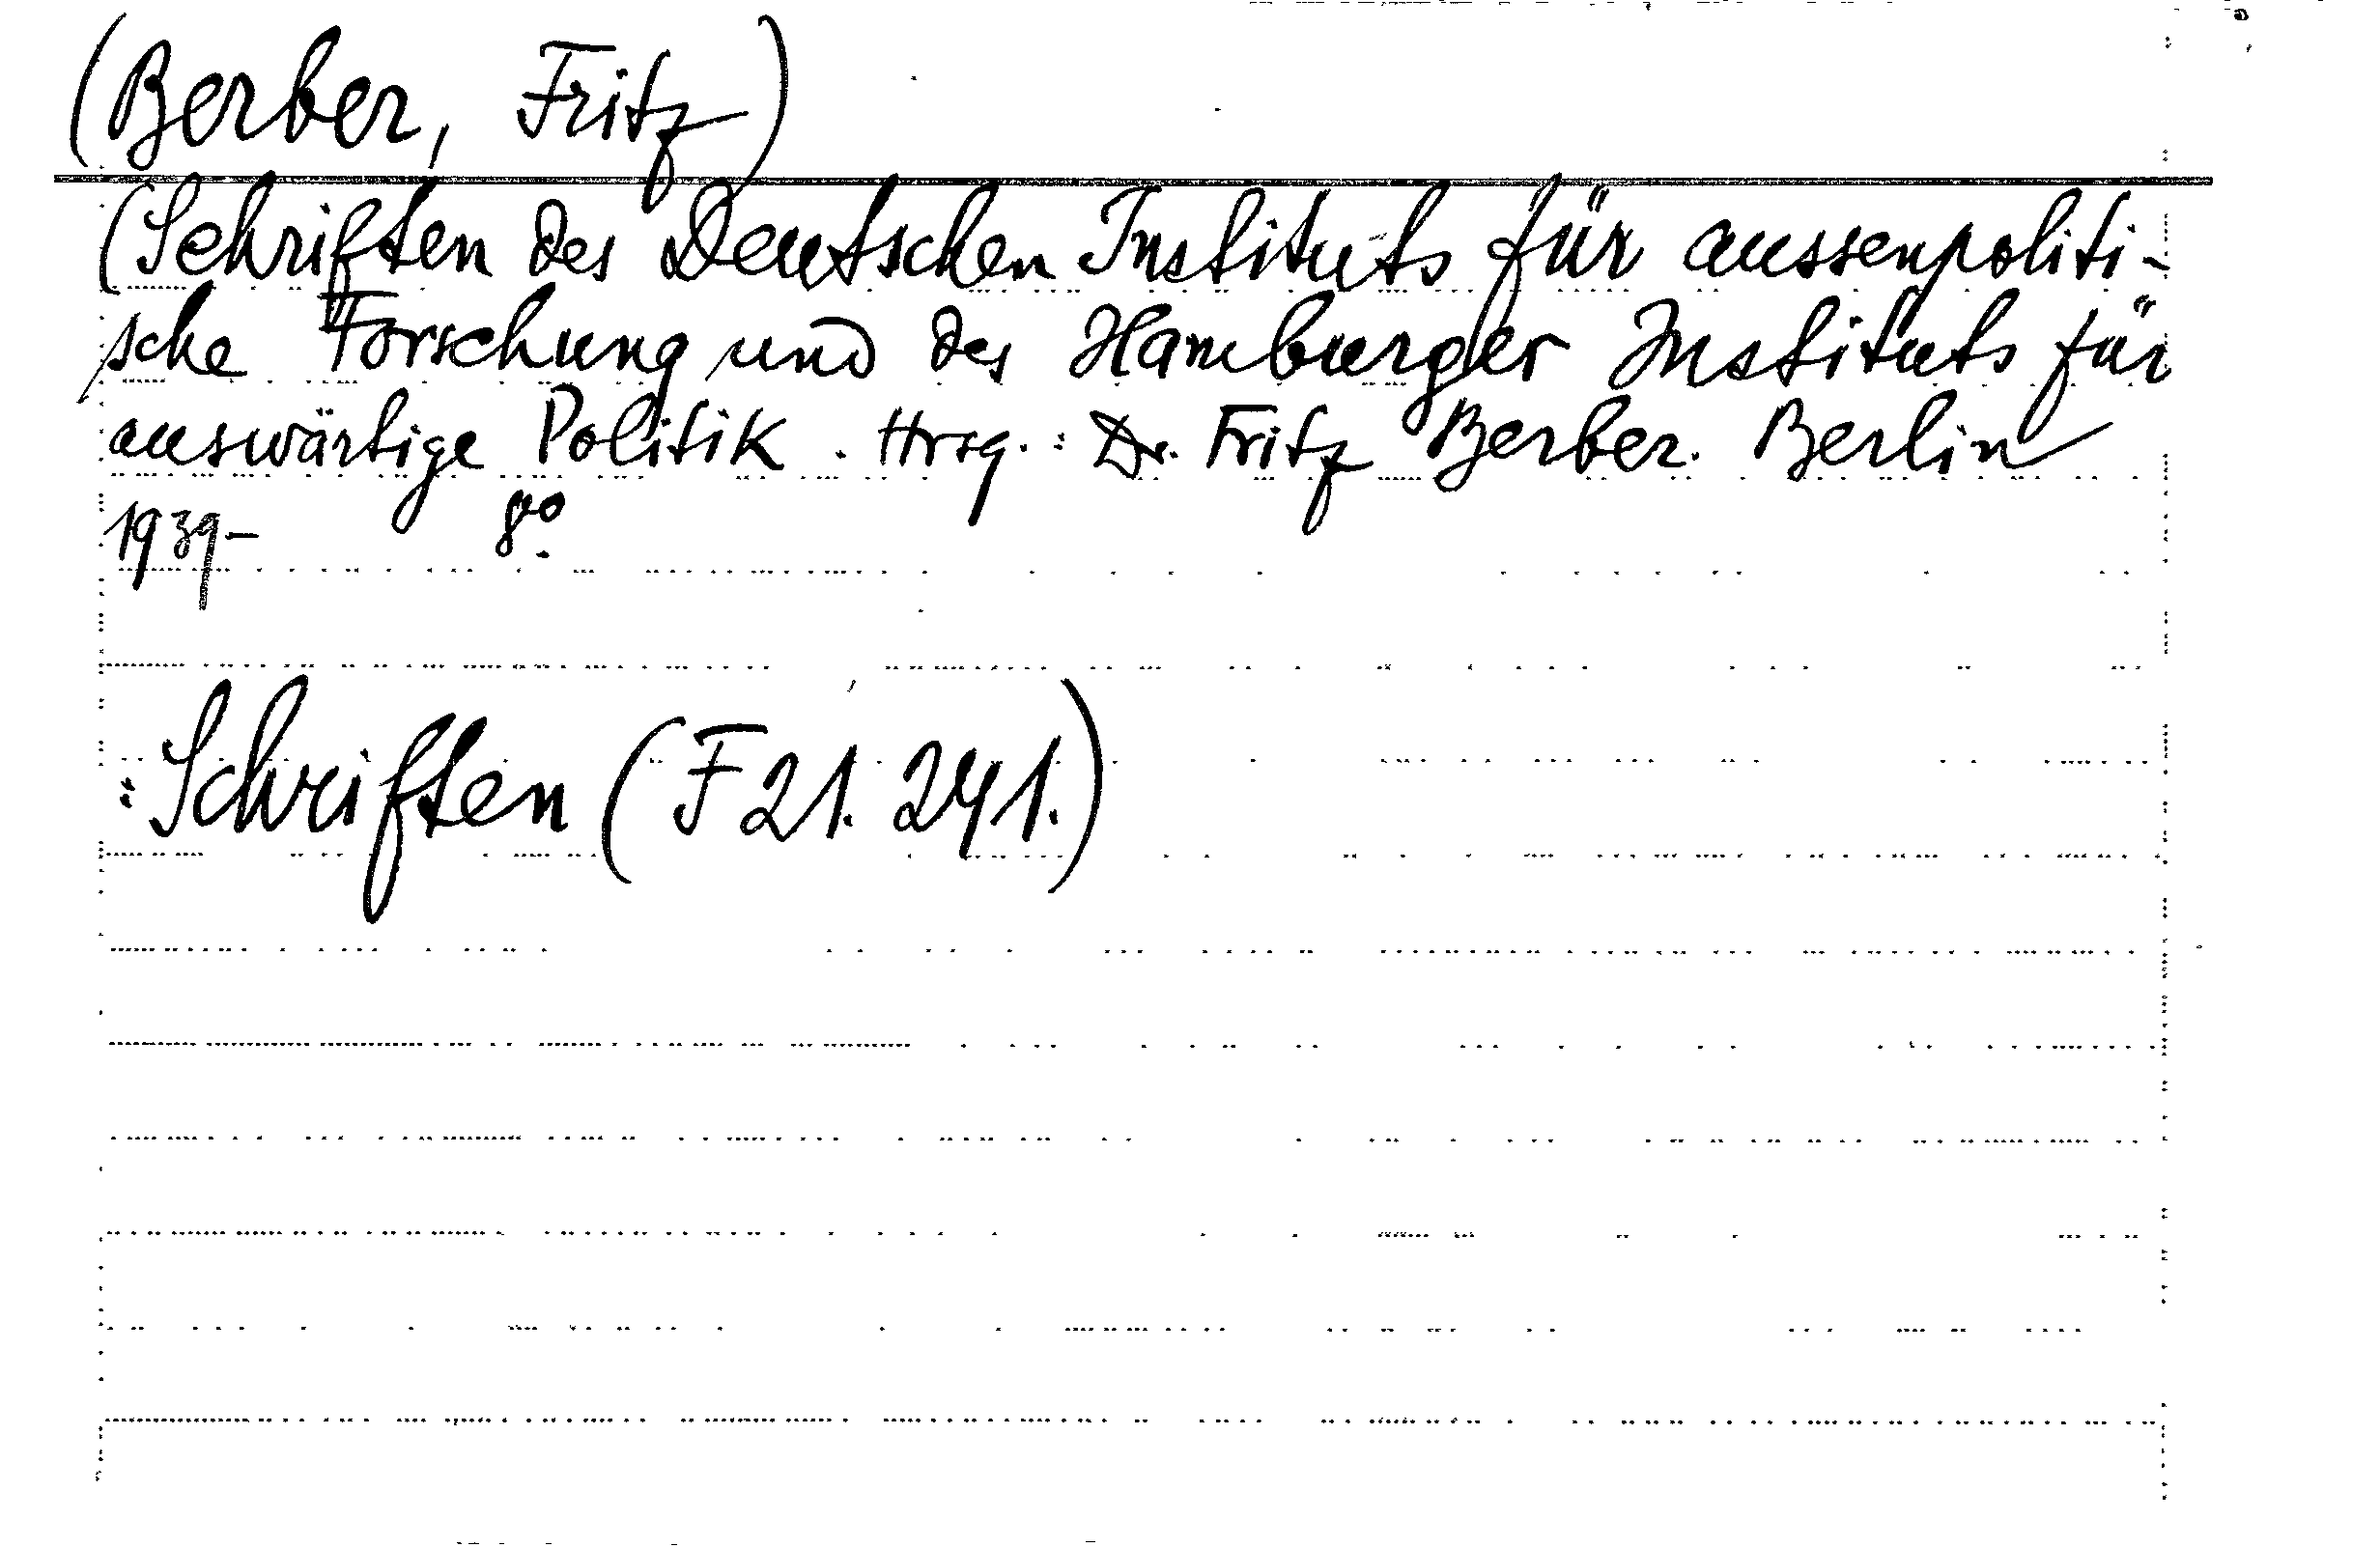 (Berber, Fritz)
(Schriften des Deutschen Instituts für aussenpoliti-
sche Forschung und des Hamburger Instituts für
auswärtige Politik. Hrsg.: Dr. Fritz Berber. Berlin
1939- 8o.
:Schriften (F 21. 241.)